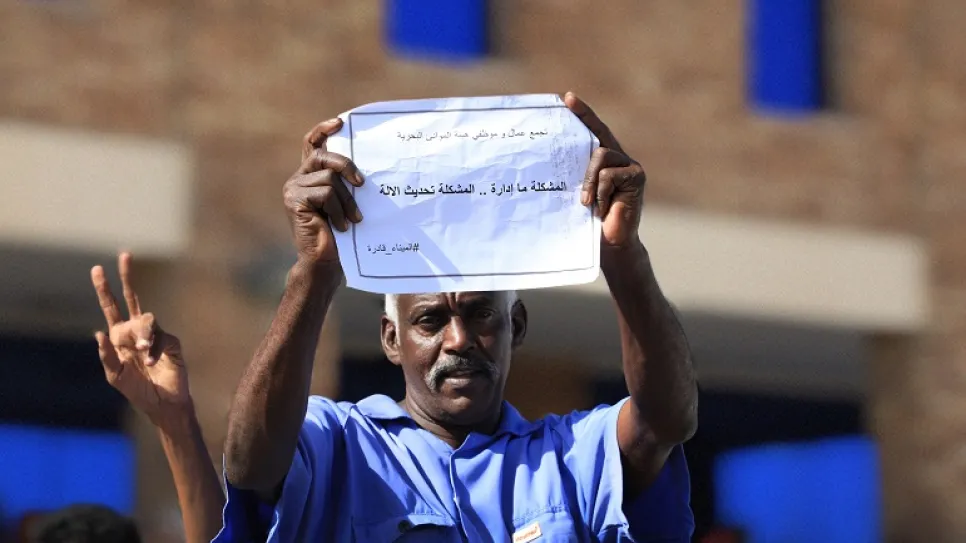 تجمع عمال و موظفي هيئة الموانئ البحرية
المشكلة ما إدارة .. المشكلة تحديث الالة
#الميناء_قادرة